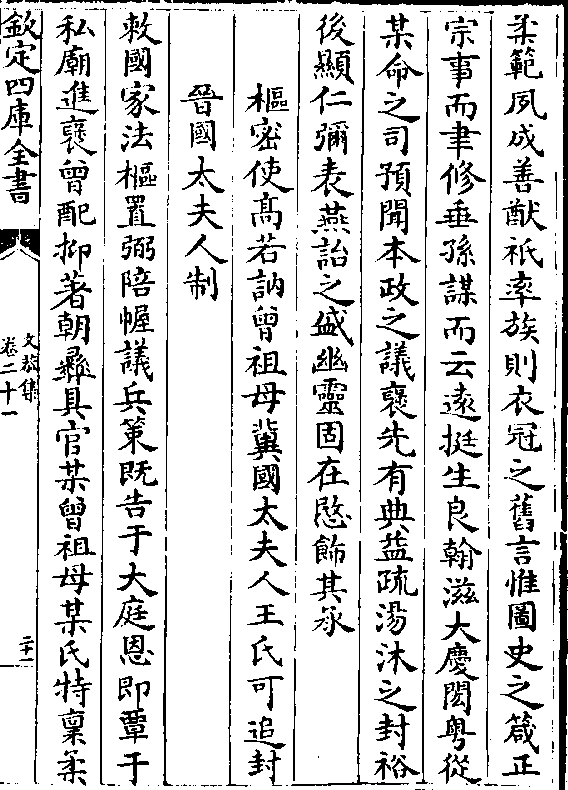 柔範夙成善猷祇率族則衣冠之舊言惟圖史之箴正
宗事而聿修垂孫謀而云遠挺生良翰滋大慶閎粤從
某命之司預聞本政之議褒先有典益疏湯沐之封裕
後顯仁彌表燕詒之盛幽靈固在愍飾其承
樞密使髙若訥曾祖母冀國太夫人王氏可追封
晉國太夫人制
敕國家法樞置弼陪幄議兵策既告于大庭恩即覃于
私廟進褒曾配抑著朝彝具官某曾祖母某氏特稟柔
欽定四庫全書
文恭集
卷二十一
二十一